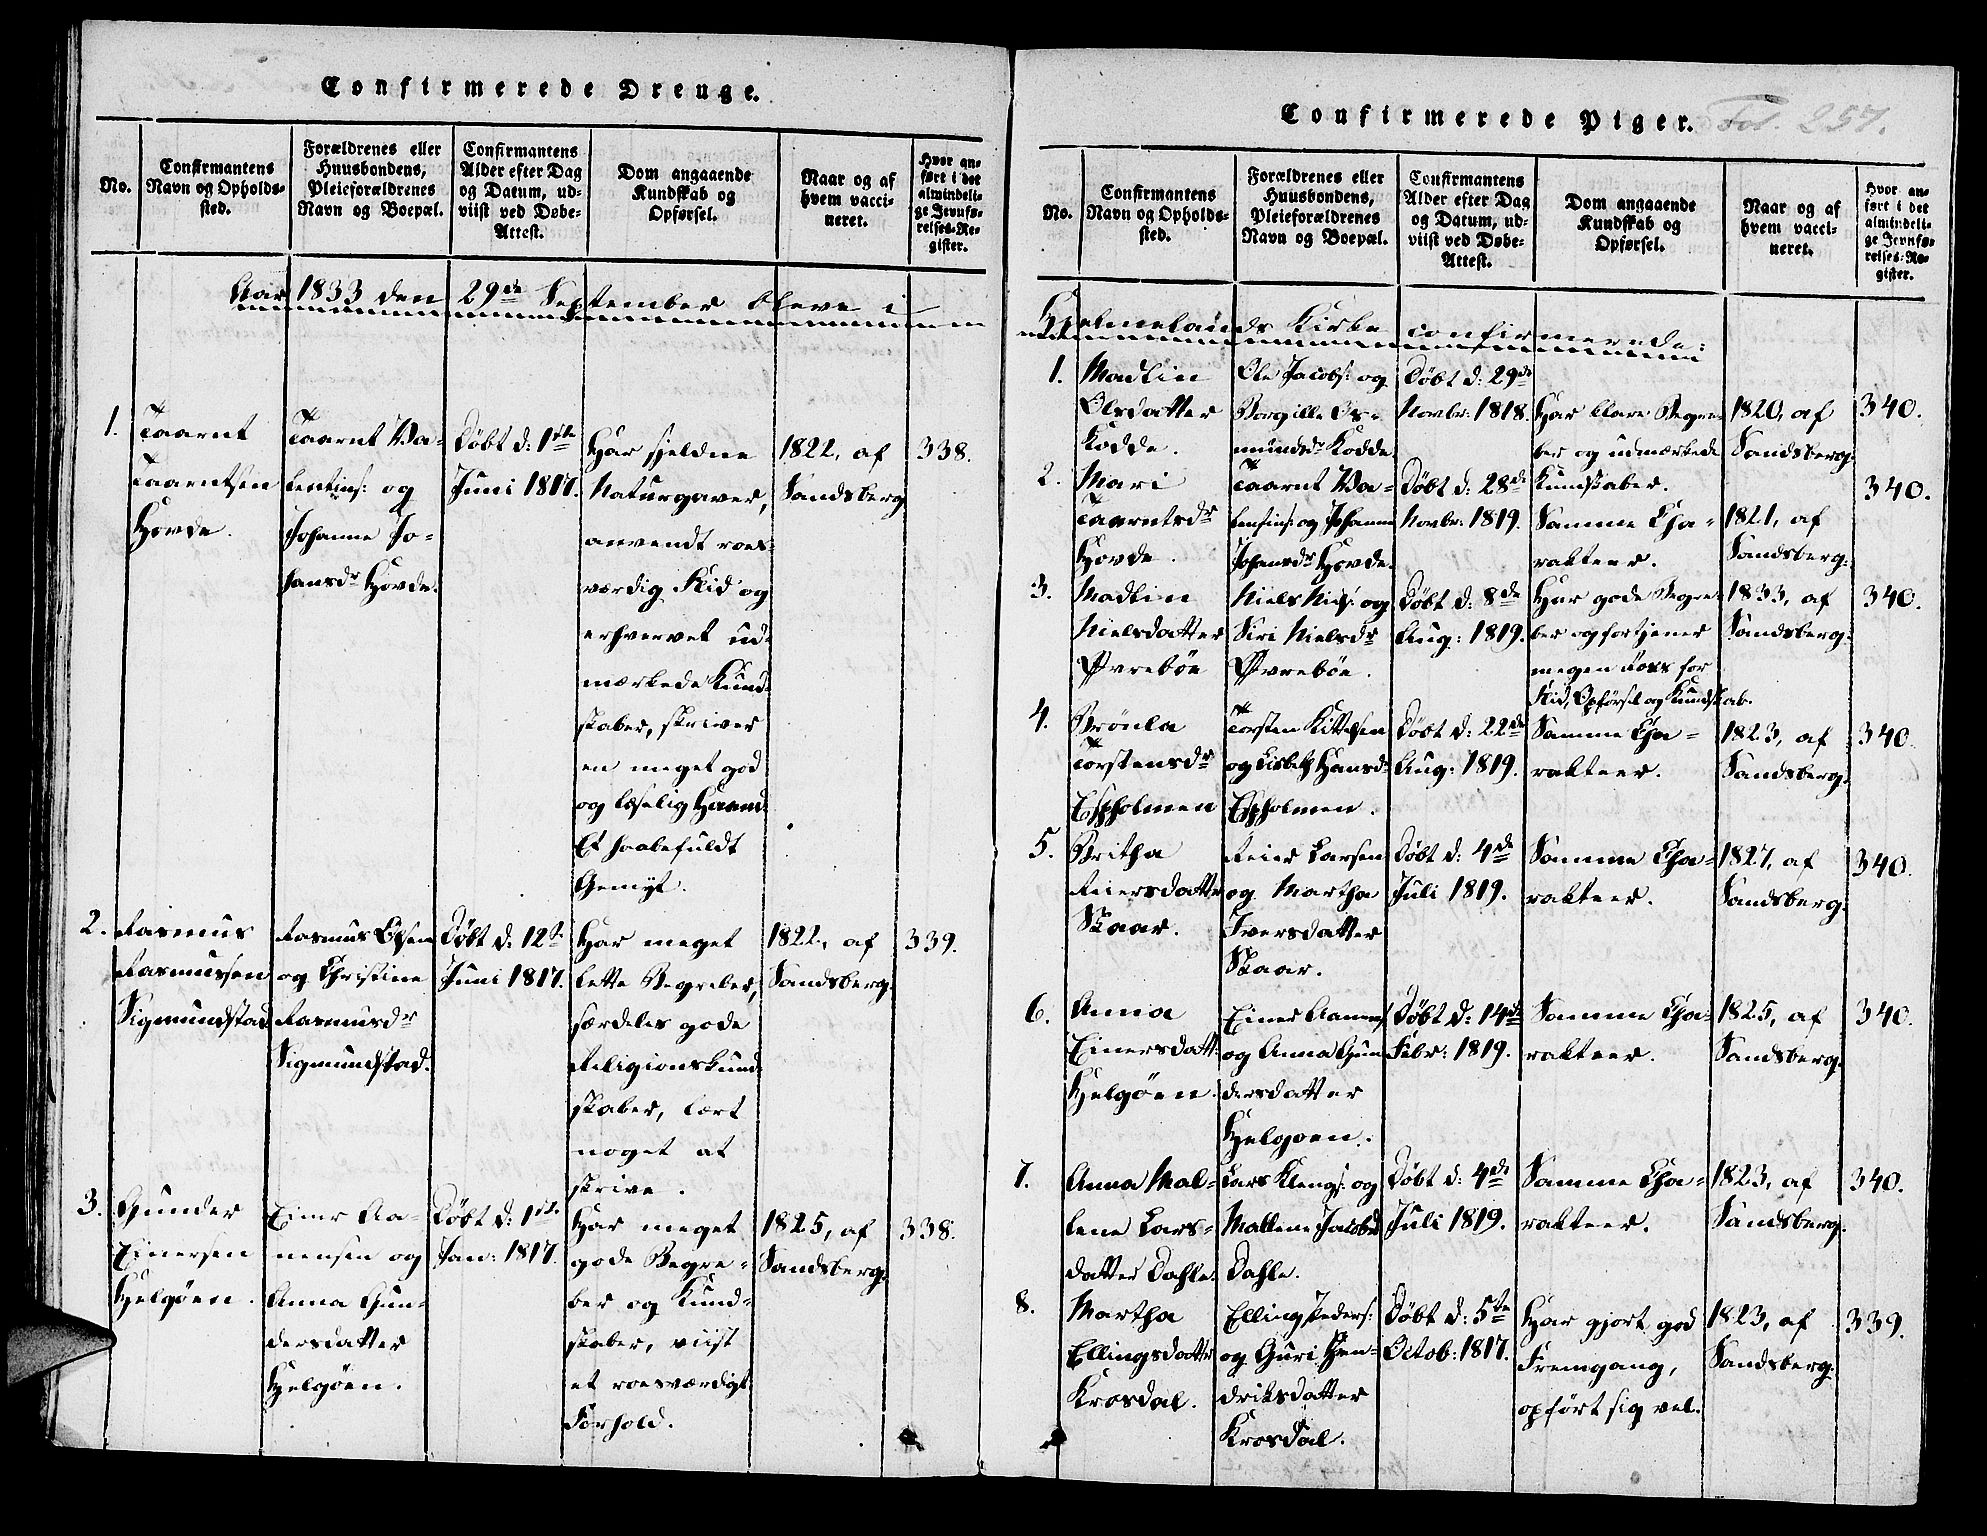 Confirmerede Drenge.
No.
Confirmantens
Navn og Opholds-
sted.
Forældrenes eller
Huusbondens,
Pleieforældrenes
Navn og Boepæl.
Confirmantens
Alder efter Dag
og Datum, ud-
viist ved Døbe-
Attest.
Dom angaaende
Kundskab og
Opførsel.
Naar og af
hvem vacci-
neret.
Hvor an-
ført i det
almindeli-
ge Jevnfø-
relses-Re-
gister.
Aar 1833 den 29de September bleve i
1.
Taarnt
Taarntsen
Hovde.
Taarnt Va-
lentins: og
Johanne Jo-
hansdr Hovde.
Døbt d: 1ste
Juni 1817.
Har sjeldne
Naturgaver,
anvendt roes-
værdig Flid og
erhvervet ud-
mærkede Kund-
skaber, skriver
en meget god
og læselig Haand.
Et haabefuldt
Gemyt.
1822, af
Sandsberg
338.
2.
Rasmus
Rasmussen
Sigmundstad
Rasmus
og Christine
Rasmusdr
Sigmundstad.
Døbt d: 12te
Juni 1817.
Har meget
lette Begreber,
særdeles gode
Religionskund-
skaber, lært
noget at
skrive.
1822, af
Sandsberg.
339.
3.
Gunder
Einersen
Helgøen.
Einer Aa-
nensen og
Anna Gun-
dersdatter
Helgøen.
Døbt d: 1ste
Jan: 1817.
Har meget
gode Begre-
ber og Kund-
skaber, viist
et roesværdigt
Forhold.
1825, af
Sandsberg.
338.
Confirmerede Piger.
Fol. 257.
No.
Confirmantens
Navn og Opholds-
sted.
Forældrenes eller
Huusbondens,
Pleieforældrenes
Navn og Boepæl.
Confirmantens
Alder efter Dag
og Datum, ud-
viist ved Døbe-
Attest.
Dom angaaende
Kundskab og
Opførsel.
Naar og af
hvem vacci-
neret.
Hvor an-
ført i det
almindeli-
ge Jevnfø-
relses-Re-
gister.
Hjelmelands Kirke confirmerede:
1.
Madlin
Olsdatter
Kodde.
Ole Jacobs: og
Borgille Os-
mundsdr Kodde
Døbt d: 29de
Novbr: 1818.
Har klare Begre-
ber og udmærkede
Kundskaber.
1820, af
Sandsberg.
340.
2.
Mari
Taarntsdr
Hovde.
Taarnt Va-
lentins: og Johanne
Johansdr Hovde.
Døbt d: 28de
Novbr: 1819.
Samme Cha-
rakteer.
1821, af
Sandsberg.
340.
3.
Madlin
Nielsdatter
Øvrebøe
Niels Niels: og
Siri Nielsdr
Øvrebøe.
Døbt d: 8de
Aug: 1819.
Har gode Begre-
ber og fortjener
megen Roes for
Flid, Opførsel og Kundskab.
1833, af
Sandsberg.
340.
4.
Brönla
Torstensdr
Espholmen
Torsten Kittelsen
og Lisbeth Hansdr
Espholmen.
Døbt d: 22de
Aug: 1819.
Samme Cha-
rakteer.
1823, af
Sandsberg.
340.
5.
Britha
Reiersdatter
Skaar.
Reier Larsen
og Martha
Iversdatter
Skaar.
Døbt d: 4de
Juli 1819.
Samme Cha-
rakteer.
1827, af
Sandsberg.
340.
6.
Anna
Einersdatt:
Helgøen.
Einer Aanens:
og Anna Gun-
dersdatter
Helgøen.
Døbt d: 14de
Febr: 1819.
Samme Cha-
rakteer.
1825, af
Sandsberg.
340.
7.
Anna Mal-
lene Lars-
datter Dahle.
Lars Klengs: og
Mallene Jacobsd
Dahle.
Døbt d: 4de
Juli 1819.
Samme Cha-
rakteer.
1823, af
Sandsberg.
340.
8.
Martha
Ellingsdatter
Krosdal.
Elling Peders:
og Guri Hen-
driksdatter
Krosdal.
Døbt d: 5te
Octob: 1817.
Har gjort god
Fremgang,
opført sig vel.
1823, af
Sandsberg.
339.